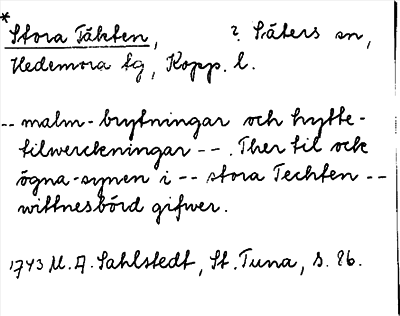 *
Stora Täkten, ? Säters sn,
Hedemora tg, Kopp. l.
-- malm-brytningar och hytte-
tilwerckningar --. Ther til ock
ögna-synen i -- stora Techten --
wittnesbörd gifwer.
1743 M. A. Sahlstedt, St. Tuna, s. 86.